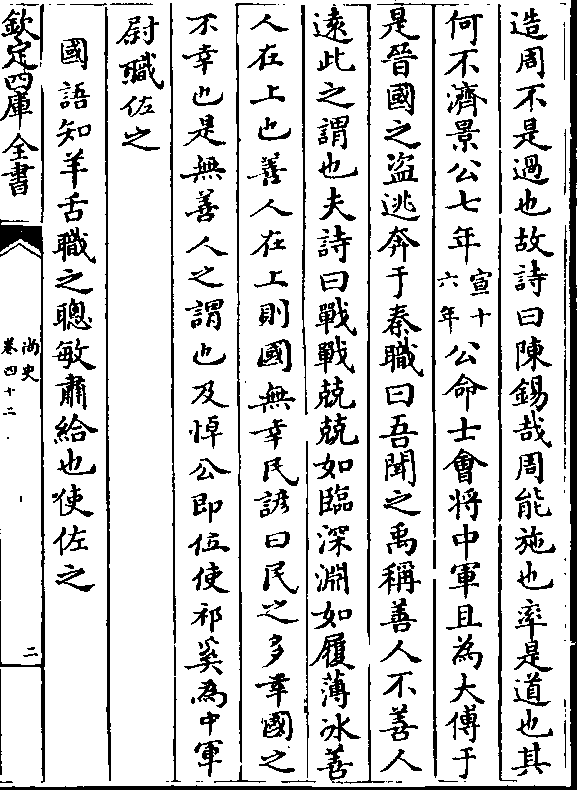 造周不是過也故詩曰陳錫哉周能施也率是道也其
何不濟景公七年宣十六年公命士會將中軍且為大傅于
是晉國之盜逃奔于秦職曰吾聞之禹稱善人不善人
遠此之謂也夫詩曰戰戰兢兢如臨深淵如履薄冰善
人在上也善人在上則國無幸民諺曰民之多幸國之
不幸也是無善人之謂也及悼公即位使祁奚為中軍
尉職佐之
國語知羊舌職之聰敏肅給也使佐之
欽定四庫全書
尚史
卷四十二
二